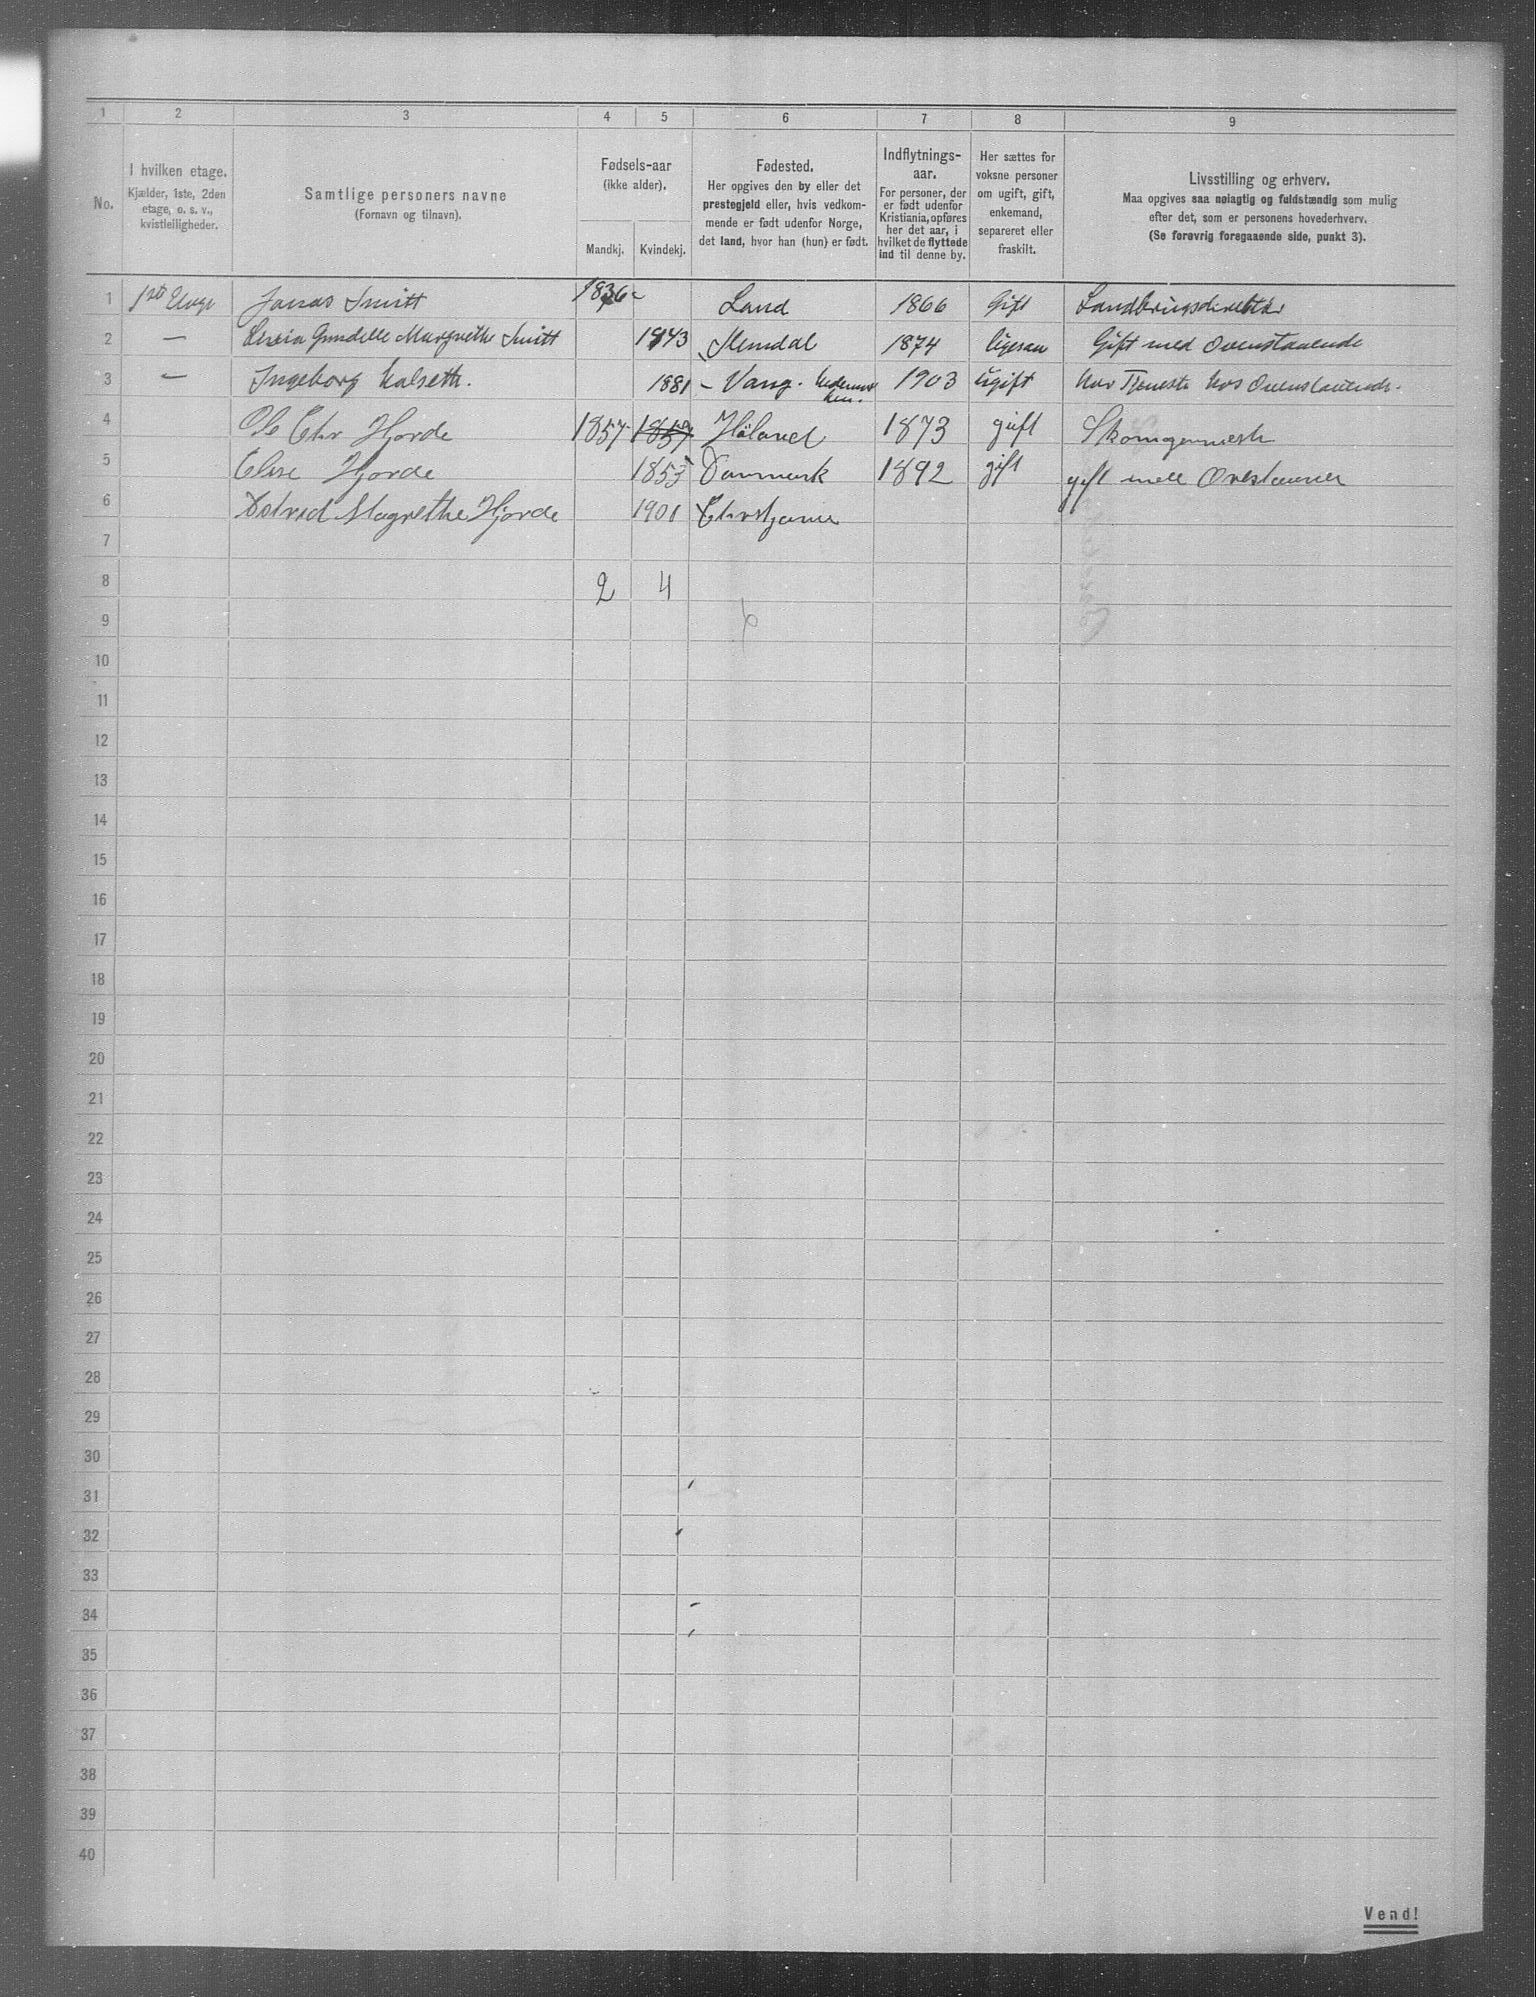 1 2 3 4 5 6 7 8 9
No.
I hvilken etage.
Kjælder, 1ste, 2den
etage, o. s. v.,
kvistleiligheder.
Samtlige personers navne
(Fornavn og tilnavn).
Fødsels-aar
(ikke alder).
Mandkj. Kvindekj.
Fødested.
Her opgives den by eller det
prestegjeld eller, hvis vedkom-
mende er født udenfor Norge,
det land, hvor han (hun) er født.
Indflytnings-
aar.
For personer, der
er født udenfor
Kristiania, opføres
her det aar, i
hvilket de flyttede
ind til denne by.
Her sættes for
voksne personer
om ugift, gift,
enkemand,
separeret eller
fraskilt.
Livsstilling og erhverv.
Maa opgives saa nøiagtig og fuldstændig som mulig
efter det, som er personens hovederhverv.
(Se forøvrig foregaaende side, punkt 3).
1 1ste Etage Jonas Smitt 1836 Land 1866 Gift Landbrugsdirektør
2 — Gundelle Margrethe Smitt 1843 Stendal 1874 ligesaa Gift med Ovenstaaende
3 — Ingeborg Kalseth. 1881 – Vang. 1903 ugift har Tjeneste hos Ovenstaaende.
4 Ole Chr Hjorde 1857 1859 Høland 1873 gift Skomagermester
5 Else Hjorde 1853 Danmark 1892 gift gift med
6 Astrid Magrethe Hjorde 1901 Christjania
7
8 2 4
9 6
10
11
12
13
14
15
16
17
18
19
20
21
22
23
24
25
26
27
28
29
30
31
32
33
34
35
36
37
38
39
40
Vend!